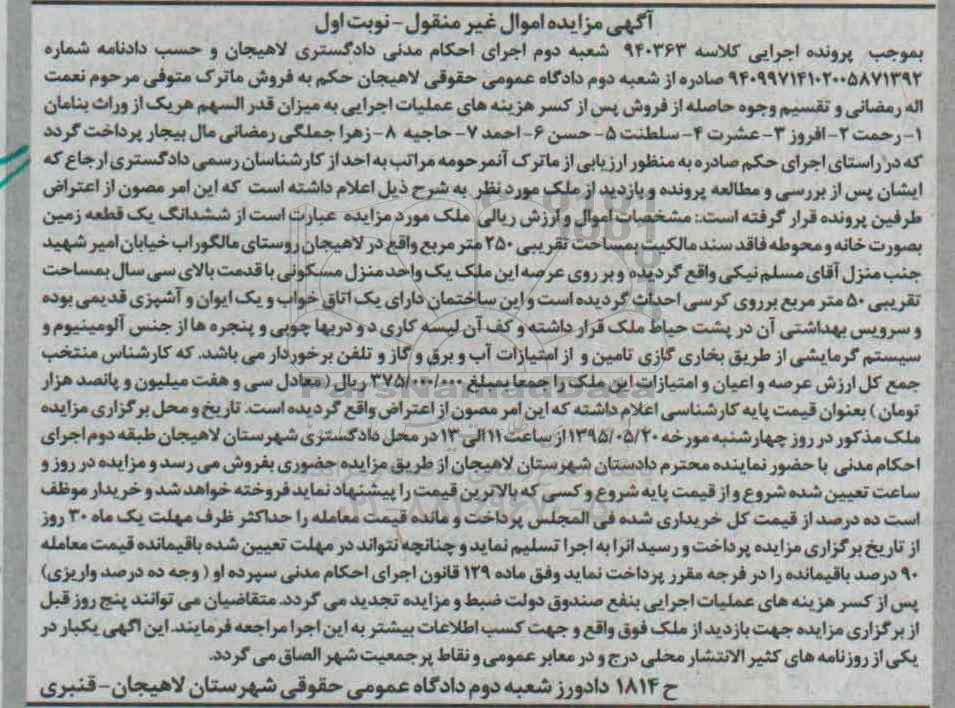 آگهی مزایده اموال غیر منقول - نوبت اول
بموجب پرونده اجرایی کلاسه ۹۴۰۳۶۳ شعبه دوم اجرای احکام مدنی دادگستری لاهیجان و حسب دادنامه شماره
۹۴۰۹۹۷۱۴۱۰۲۰۰۵۸۷۱۳۹۲ صادره از شعبه دوم دادگاه عمومی حقوقی لاهیجان حکم به فروش ماترک متوفی مرحوم نعمت
اله رمضانی و تقسیم وجوه حاصله از فروش پس از کسر هزینه های عملیات اجرایی به میزان قدر السهم هریک از وراث بنامان
۱- رحمت ۲- افروز ۳- عشرت ۴- سلطنت ۵- حسن ۶- احمد ۷- حاجیه ۸- زهرا جملگی رمضانی مال بیجار پرداخت گردد
که در راستای اجرای حکم صادره به منظور ارزیابی از ماترک آنمرحومه مراتب به احد از کارشناسان رسمی دادگستری ارجاع که
ایشان پس از بررسی و مطالعه پرونده و بازدید از ملک مورد نظر به شرح ذیل اعلام داشته است که این امر مصون از اعتراض
طرفین پرونده قرار گرفته است: مشخصات اموال و ارزش ریالی ملک مورد مزایده عبارت است از ششدانگ یک قطعه زمین
بصورت خانه و محوطه فاقد سند مالکیت بمساحت تقریبی ۲۵۰ متر مربع واقع در لاهیجان روستای مالگوراب خیابان امیر شهید
جنب منزل آقای مسلم نیکی واقع گردیده و بر روی عرصه این ملک یک واحد منزل مسکونی با قدمت بالای سی سال بمساحت
تقریبی ۵۰ متر مربع برروی کرسی احداث گردیده است و این ساختمان دارای یک اتاق خواب و یک ایوان و آشپزی قدیمی بوده
و سرویس بهداشتی آن در پشت حیاط ملک قرار داشته و کف آن لیسه کاری د و دربها چوبی و پنجره ها از جنس آلومینیوم و
سیستم گرمایشی از طریق بخاری گازی تامین و از امتیازات آب و برق و گاز و تلفن برخوردار می باشد. که کارشناس منتخب
جمع کل ارزش عرصه و اعیان و امتیازات این ملک را جمعا بمبلغ ۳۷۵/۰۰۰/۰۰۰ ریال ( معادل سی و هفت میلیون و پانصد هزار
تومان ) بعنوان قیمت پایه کارشناسی اعلام داشته که این امر مصون از اعتراض واقع گردیده است. تاریخ و محل برگزاری مزایده
ملک مذکور در روز چهارشنبه مورخه ۱۳۹۵/۰۵/۲۰ از ساعت ۱۱ الی ۱۳ در محل دادگستری شهرستان لاهیجان طبقه دوم اجرای
احکام مدنی با حضور نماینده محترم دادستان شهرستان لاهیجان از طریق مزایده حضوری بفروش می رسد و مزایده در روز و
ساعت تعیین شده شروع و از قیمت پایه شروع و کسی که بالاترین قیمت را پیشنهاد نماید فروخته خواهد شد و خریدار موظف
است ده درصد از قیمت کل خریداری شده فی المجلس پرداخت و مانده قیمت معامله را حداکثر ظرف مهلت یک ماه ۳۰ روز
از تاریخ برگزاری مزایده پرداخت و رسید انرا به اجرا تسلیم نماید و چنانچه نتواند در مهلت تعیین شده باقیمانده قیمت معامله
۹۰ درصد باقیمانده را در فرجه مقرر پرداخت نماید وفق ماده ۱۲۹ قانون اجرای احکام مدنی سپرده او ( وجه ده درصد واریزی)
پس از کسر هزینه های عملیات اجرایی بنفع صندوق دولت ضبط و مزایده تجدید می گردد. متقاضیان می توانند پنج روز قبل
از برگزاری مزایده جهت بازدید از ملک فوق واقع و جهت کسب اطلاعات بیشتر به این اجرا مراجعه فرمایند. این اگهی یکبار در
یکی از روزنامه های کثیر الانتشار محلی درج و در معابر عمومی و نقاط پر جمعیت شهر الصاق می گردد.
ح ۱۸۱۴ دادورز شعبه دوم دادگاه عمومی حقوقی شهرستان لاهیجان - قنبری
ParsNamadData